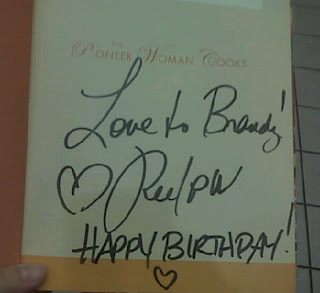 THE
PIONEER WOMAN COOKS
Love to Brandy!
Ree/PW
HAPPY BIRTHDAY!